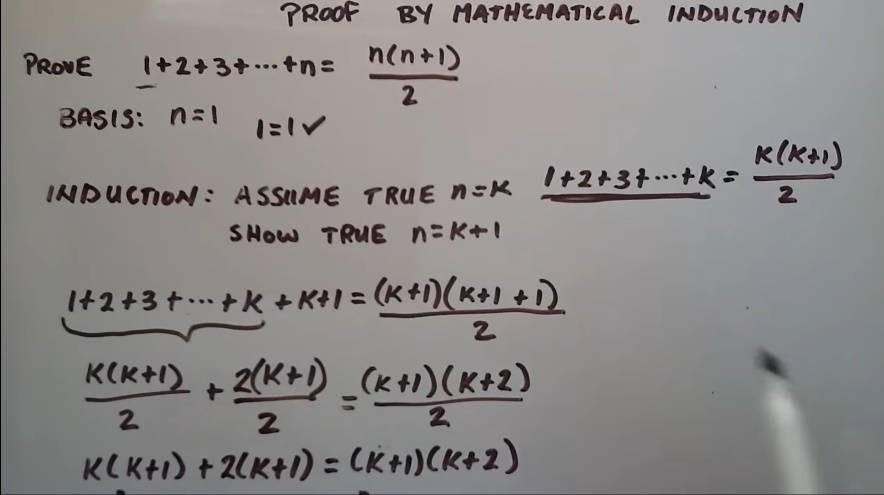 PROOF BY MATHEMATICAL INDUCTION
PROVE 1+2+3+⋯+n= n(n+1)/2
BASIS: n=1 1=1✓
INDUCTION: ASSUME TRUE n=K 1+2+3+⋯+K= K(K+1)/2
SHOW TRUE n=K+1
1+2+3+⋯+K+K+1=(K+1)(K+1+1)/2
K(K+1)/2+2(K+1)/2=(K+1)(K+2)/2
K(K+1)+2(K+1)=(K+1)(K+2)